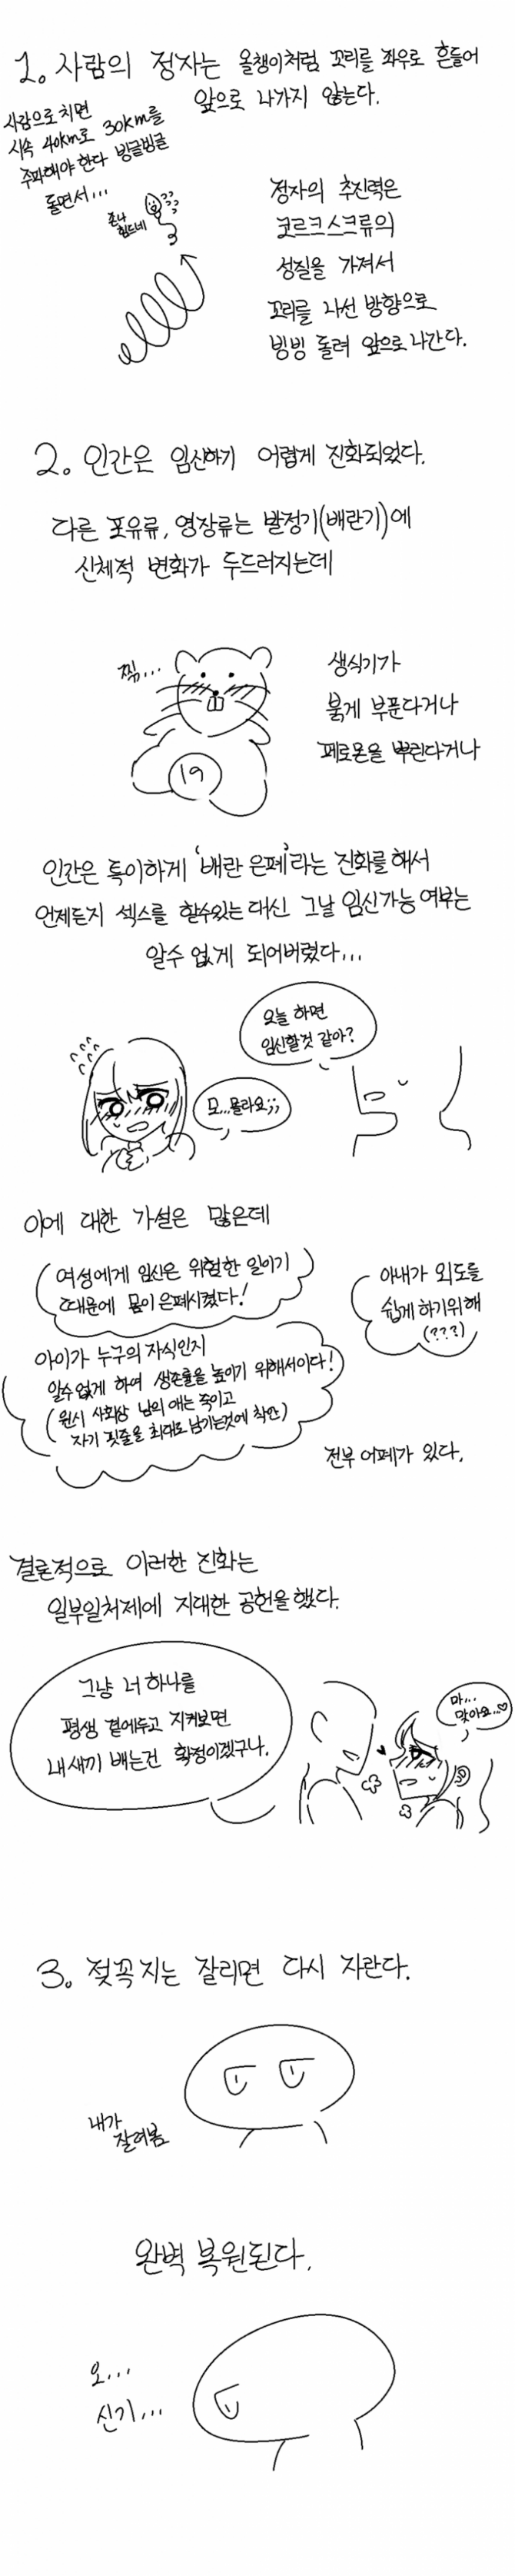 1. 사람의 정자는 올챙이처럼 꼬리를 좌우로 흔들어
앞으로 나가지 않는다.
사람으로 치면
시속 40km로 30km를
주파해야 한다 빙글빙글
돌면서...
존나
힘드네
???
정자의 추진력은
코르크스크류의
성질을 가져서
꼬리를 나선 방향으로
빙빙 돌려 앞으로 나간다.
2. 인간은 임신하기 어렵게 진화되었다.
다른 포유류, 영장류는 발정기(배란기)에
신체적 변화가 두드러지는데
찍...
19
생식기가
붉게 부푼다거나
페로몬을 뿌린다거나
인간은 특이하게 '배란 은폐'라는 진화를 해서
언제든지 섹스를 할수있는 대신 그날 임신가능 여부는
알수 없게 되어버렸다...
오늘 하면
임신할것 같아?
모...몰라요;;
이에 대한 가설은 많은데
여성에게 임신은 위험한 일이기
때문에 몸이 은폐시켰다!
아내가 외도를
쉽게 하기위해
(???)
아이가 누구의 자식인지
알수 없게 하여 생존률을 높이기 위해서이다!
(원시 사회상 남의 애는 죽이고
자기 핏줄을 최대로 남기는것에 착안)
전부 어폐가 있다.
결론적으로 이러한 진화는
일부일처제에 지대한 공헌을 했다.
그냥 너 하나를
평생 곁에두고 지켜보면
내 새끼 배는건 확정이겠구나.
마...
맞아요...♡
3. 젖꼭지는 잘리면 다시 자란다.
내가
잘려봄
완벽 복원된다.
오...
신기...